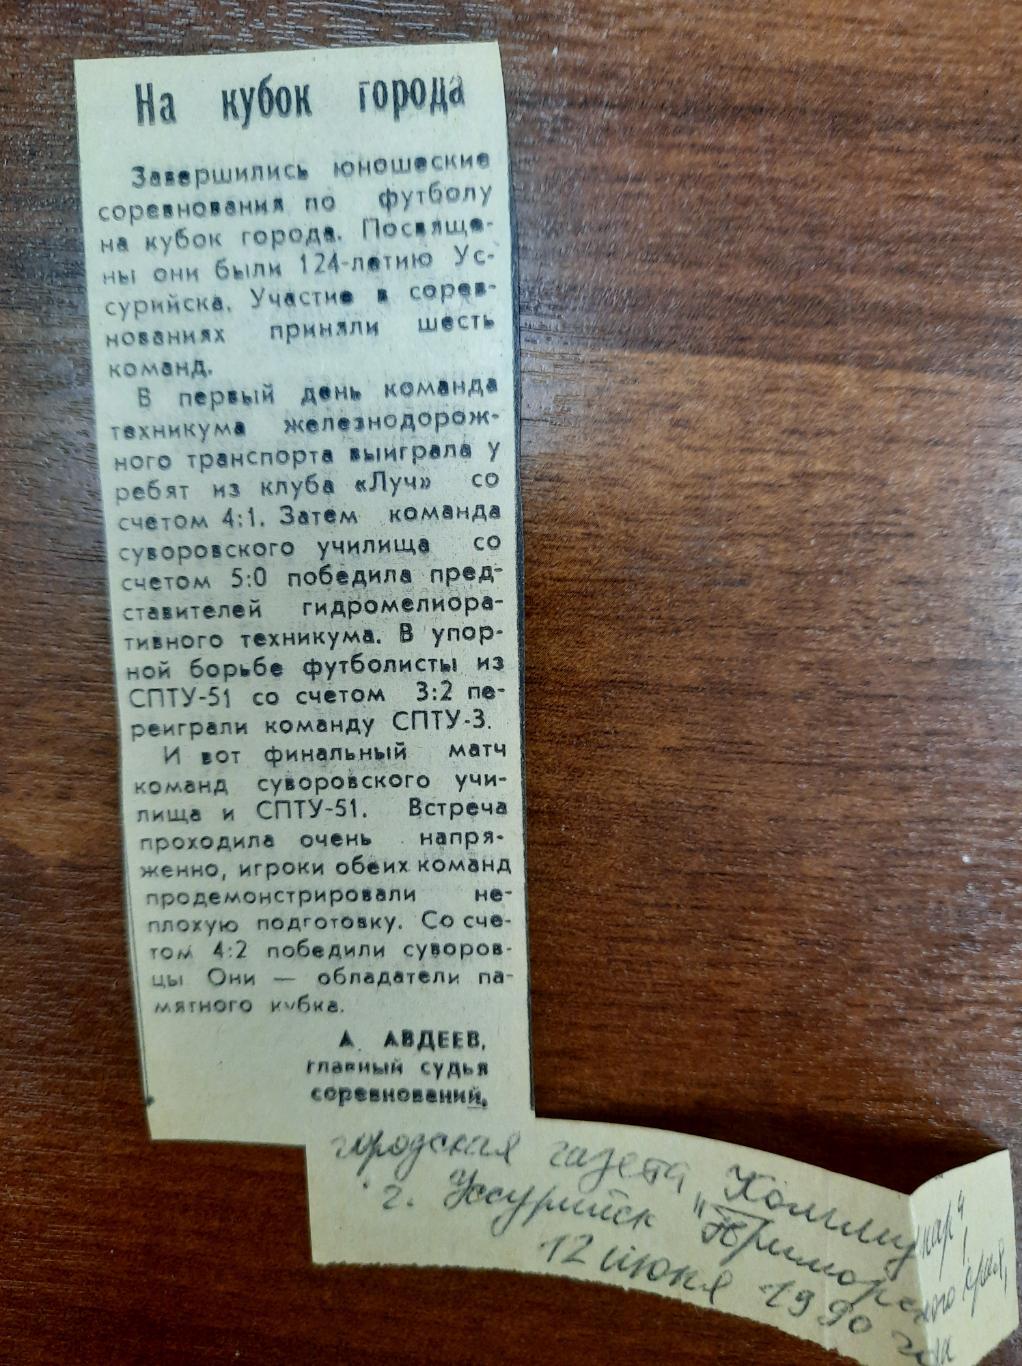 На кубок города
Завершились юношеские
соревнования по футболу
на кубок города. Посвяще-
ны они были 124-летию Ус-
сурийска. Участие в сорев-
нованиях приняли шесть
команд.
В первый день команда
техникума железнодорож-
ного транспорта выиграла у
ребят из клуба «Луч» со
счетом 4:1. Затем команда
суворовского училища со
счетом 5:0 победила пред-
ставителей гидромелиора-
тивного техникума. В упор-
ной борьбе футболисты из
СПТУ-51 со счетом 3:2 пе-
реиграли команду СПТУ-3.
И вот финальный матч
команд суворовского учи-
лища и СПТУ-51. Встреча
проходила очень напря-
женно, игроки обеих команд
продемонстрировали не-
плохую подготовку. Со сче-
том 4:2 победили суворов-
цы Они — обладатели па-
мятного кубка.
А. АВДЕЕВ,
главный судья
соревнований.
городская газета „Коммунар"
г. Уссурийск Приморского края,
12 июня 1990 года